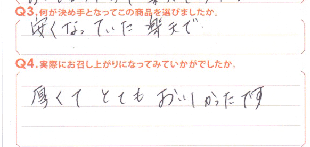 Q3.何が決め手となってこの商品を選びましたか。
安くなっていた 楽天で
Q4.実際にお召し上がりになってみていかがでしたか。
厚くて とても おいしかったです